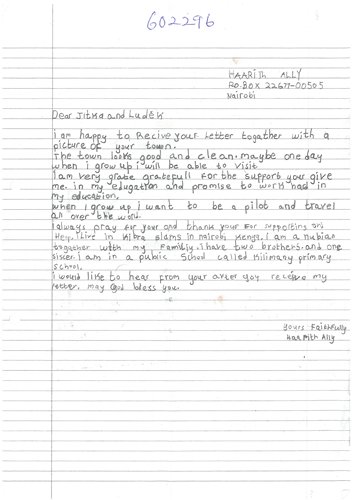 602296
HAARITH ALLY
P.O.BOX 22677-00505
Nairobi
Dear Jitka and Luděk
i am happy to Recive your Letter together with a
picture of your town.
The town looks good and clean. maybe one day
when i grow up i will be able to visit
I am very grate gratefull for the support your give
me. in my edugation and promise to work had in
my education.
when I grow up I want to be a pilot and travel
all over the world.
I always pray for you and thank your For supporting and
Help. i Live in Kibra slams in nairobi kenya, i am a nubian
together with my Familiy. i have two brothers. and one
sister. i am in a public School called Kilimany primary
school.
i would like to hear from your after you receive my
Letter. may god bless you.
Yours Faithfully
Haarith Ally